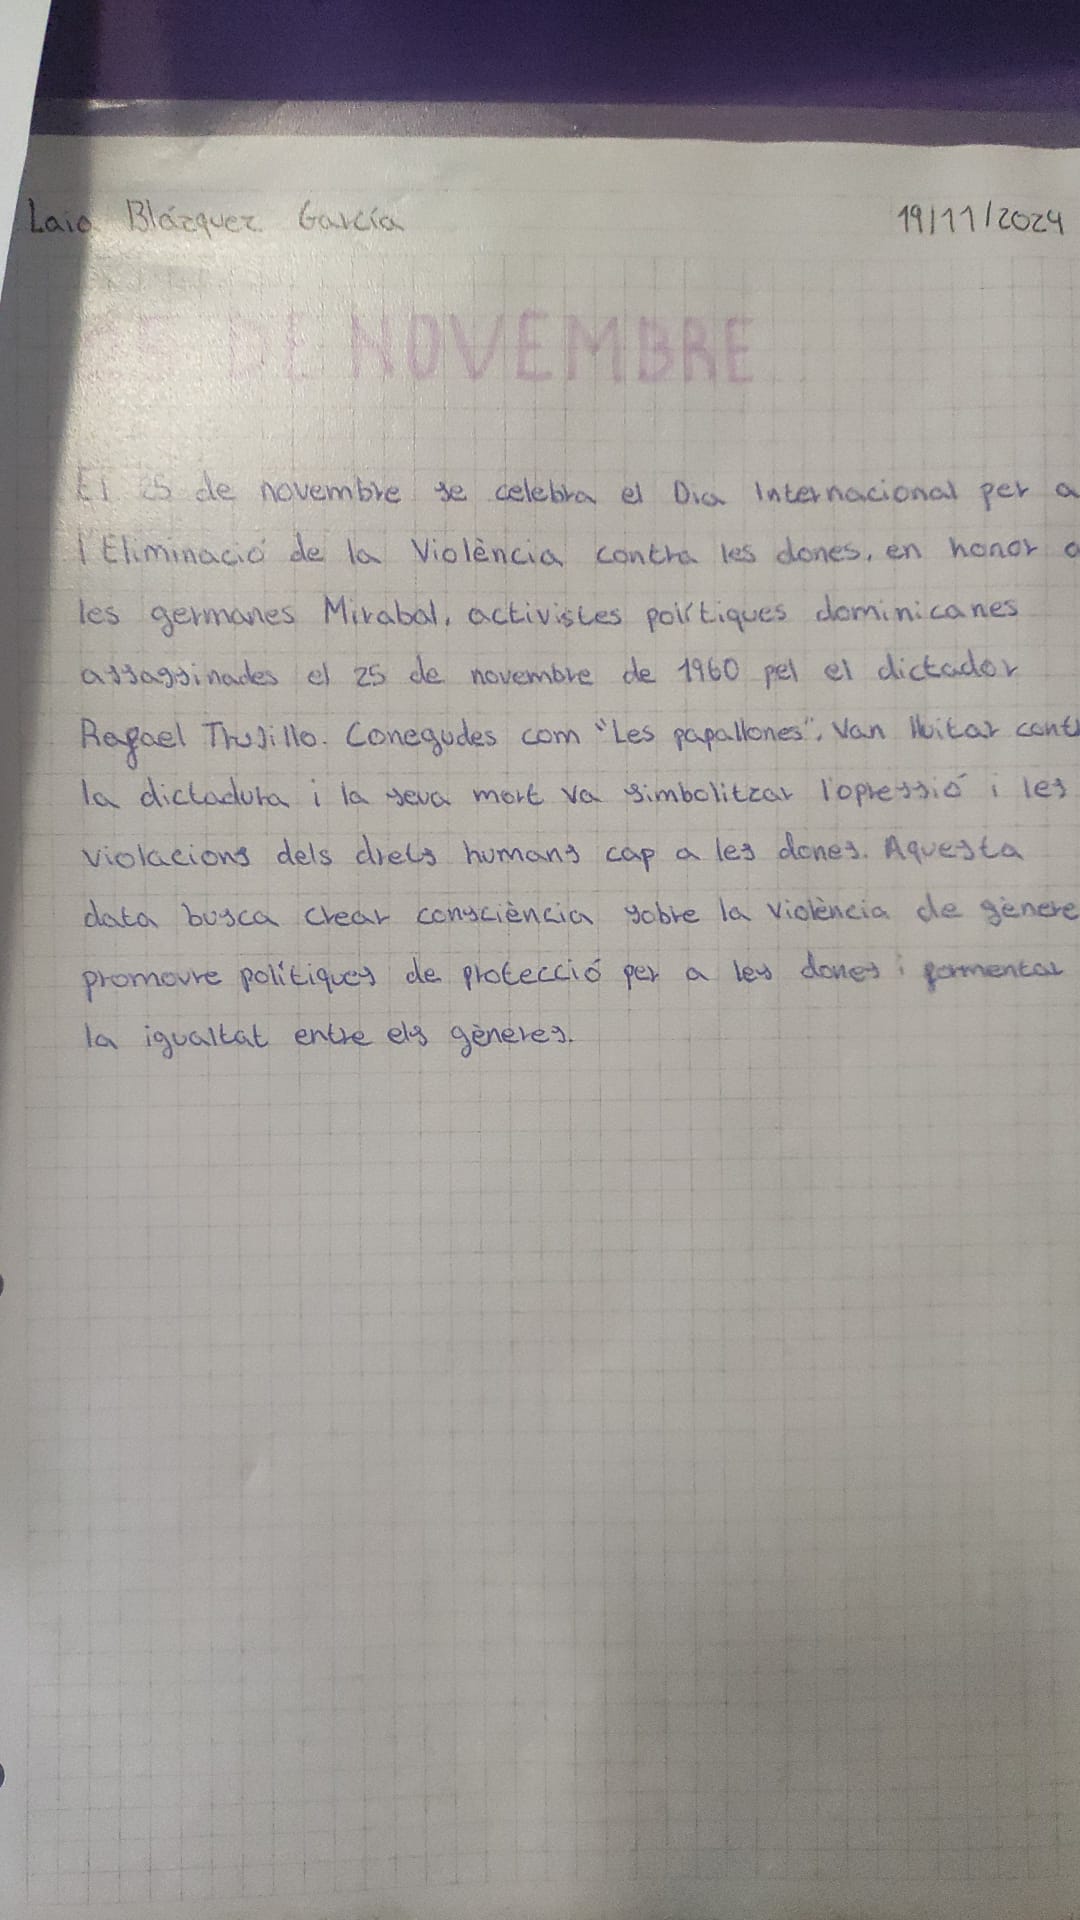 Laia Blázquez García 19/11/2024
25 DE NOVEMBRE
El 25 de novembre se celebra el Dia Internacional per a
l'Eliminació de la Violència contra les dones, en honor a
les germanes Mirabal, activistes polítiques dominicanes
assassinades el 25 de novembre de 1960 pel el dictador
Rafael Trujillo. Conegudes com "Les papallones", Van lluitar cont
la dictadura i la seva mort va simbolitzar l'opressió i les
violacions dels drets humans cap a les dones. Aquesta
data busca crear consciència sobre la violència de gènere
promoure polítiques de protecció per a les dones i formentar
la igualtat entre els gèneres.